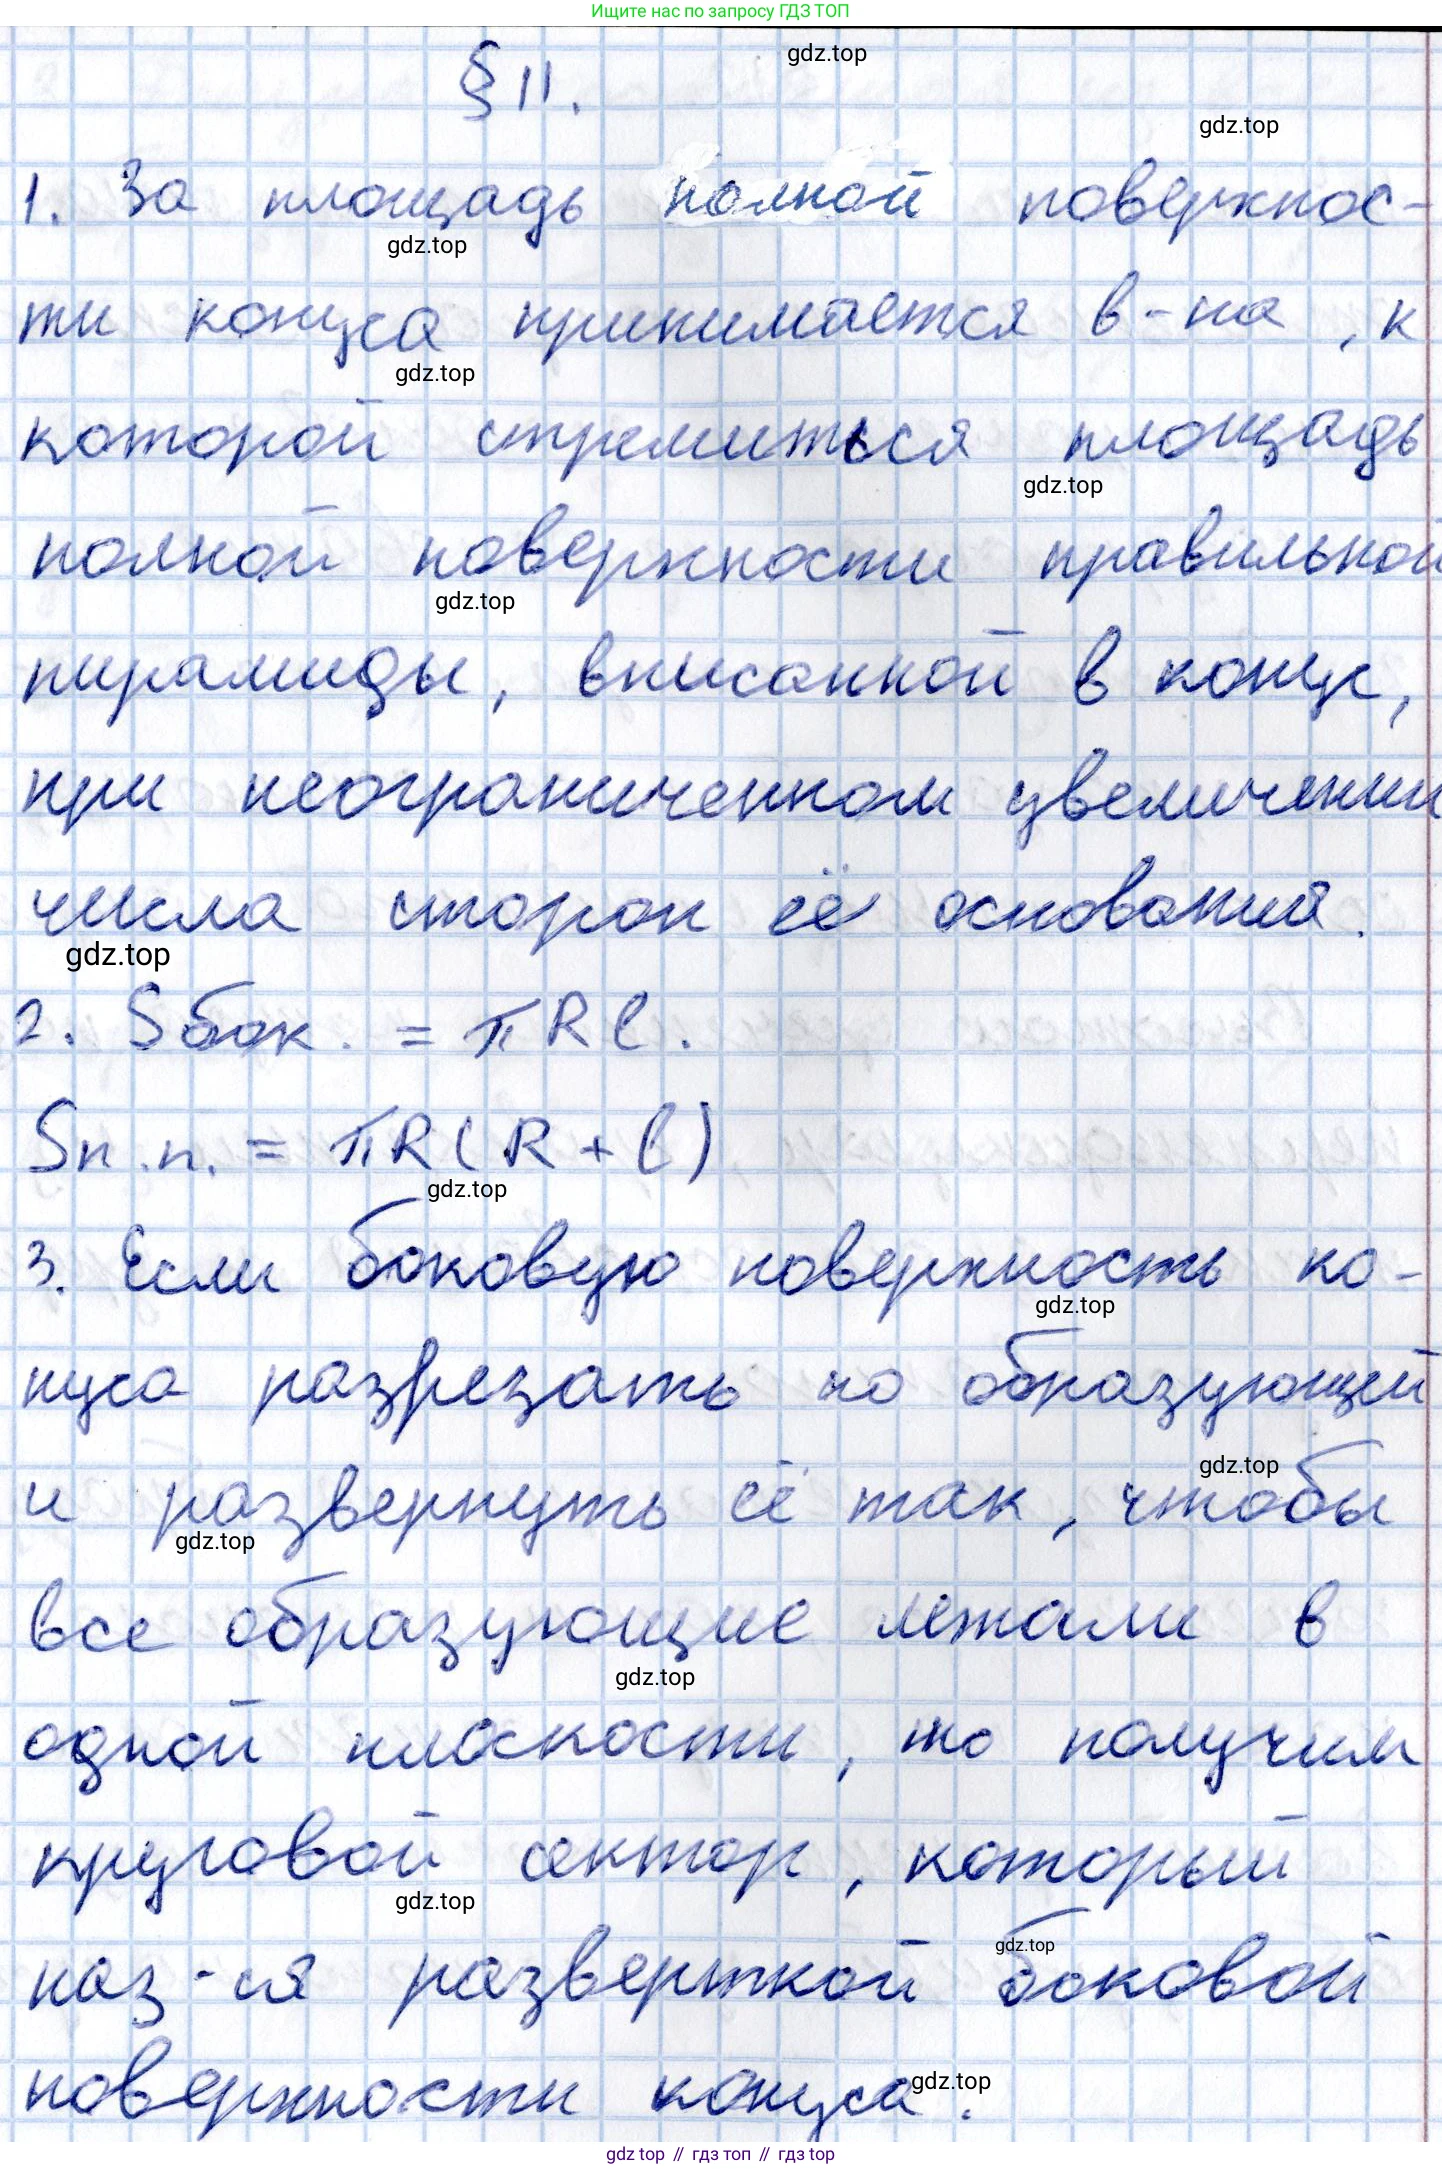 Ищите нас по запросу ГДЗ ТОП
§ 11.
gdz.top
gdz.top
1. За площадь полной поверхнос-
gdz.top
ти конуса принимается в-на, к
gdz.top
которой стремиться площадь
gdz.top
полной поверхности правильной
gdz.top
пирамиды, вписанной в конус,
при неограниченном увеличении
числа сторон её основания.
gdz.top
2. Sбок. = πRl.
Sп.п. = πR(R+l)
gdz.top
3. Если боковую поверхность ко-
gdz.top
нуса разрезать по образующей
gdz.top
и развернуть её так, чтобы
gdz.top
все образующие лежали в
gdz.top
одной плоскости, то получим
круговой сектор, который
gdz.top
gdz.top
наз-ся разверткой боковой
поверхности конуса.
gdz.top
gdz.top // гдз топ // гдз top